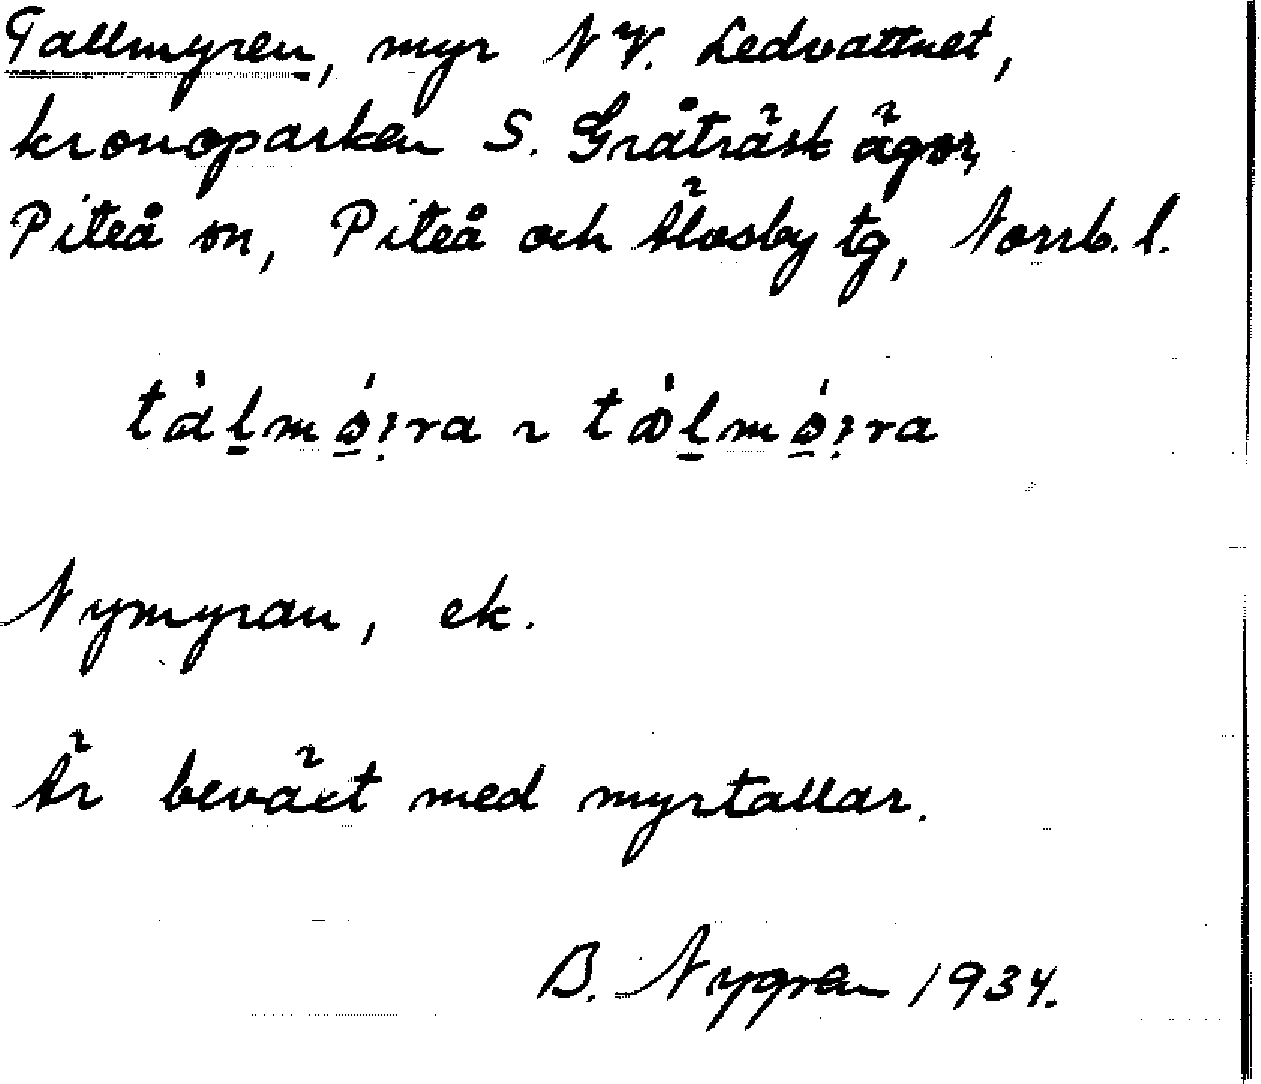 Tallmyren, myr NV. Ledvattnet,
kronoparken S. Gråträsk ägor,
Piteå sn, Piteå och Älvsby tg, Norrb. l.
tȧl̲mǿ̲ꝛ.ra ~ tȯl̲mǿ̲ꝛ.ra
Nymyran, ek.
Är beväxt med myrtallar.
B. Nygren 1934.